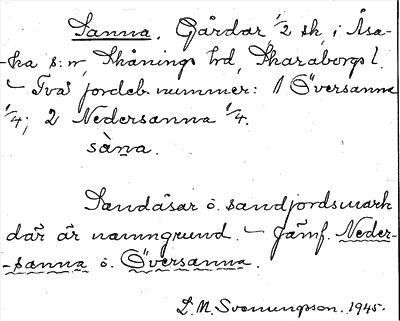 Sanna. Gårdar, 1/2 sk, i Åsa-
-ka s:n, Skånings hd, Skaraborgs l.
– Två jordeb. nummer: 1 Översanna
1/4; 2 Nedersanna 1/4.
sàna.
Sandåsar o. sandjordsmark
där är namngrund. – Jämf. Neder-
-sanna o. Översanna.
D. N. Svenungsson. 1945.